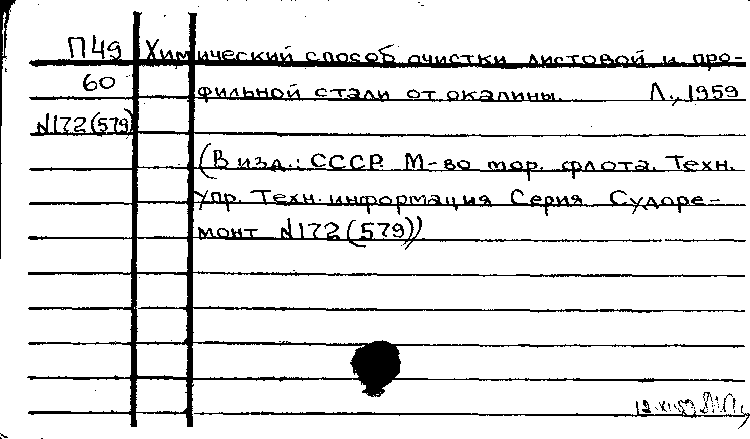 П49 Химический способ очистки листовой и про-
60 фильной стали от окалины. Л., 1959
N172(579)
(В изд.: СССР. М-во мор. флота. Техн.
упр. Техн. информация Серия Судоре-
монт N172(579))